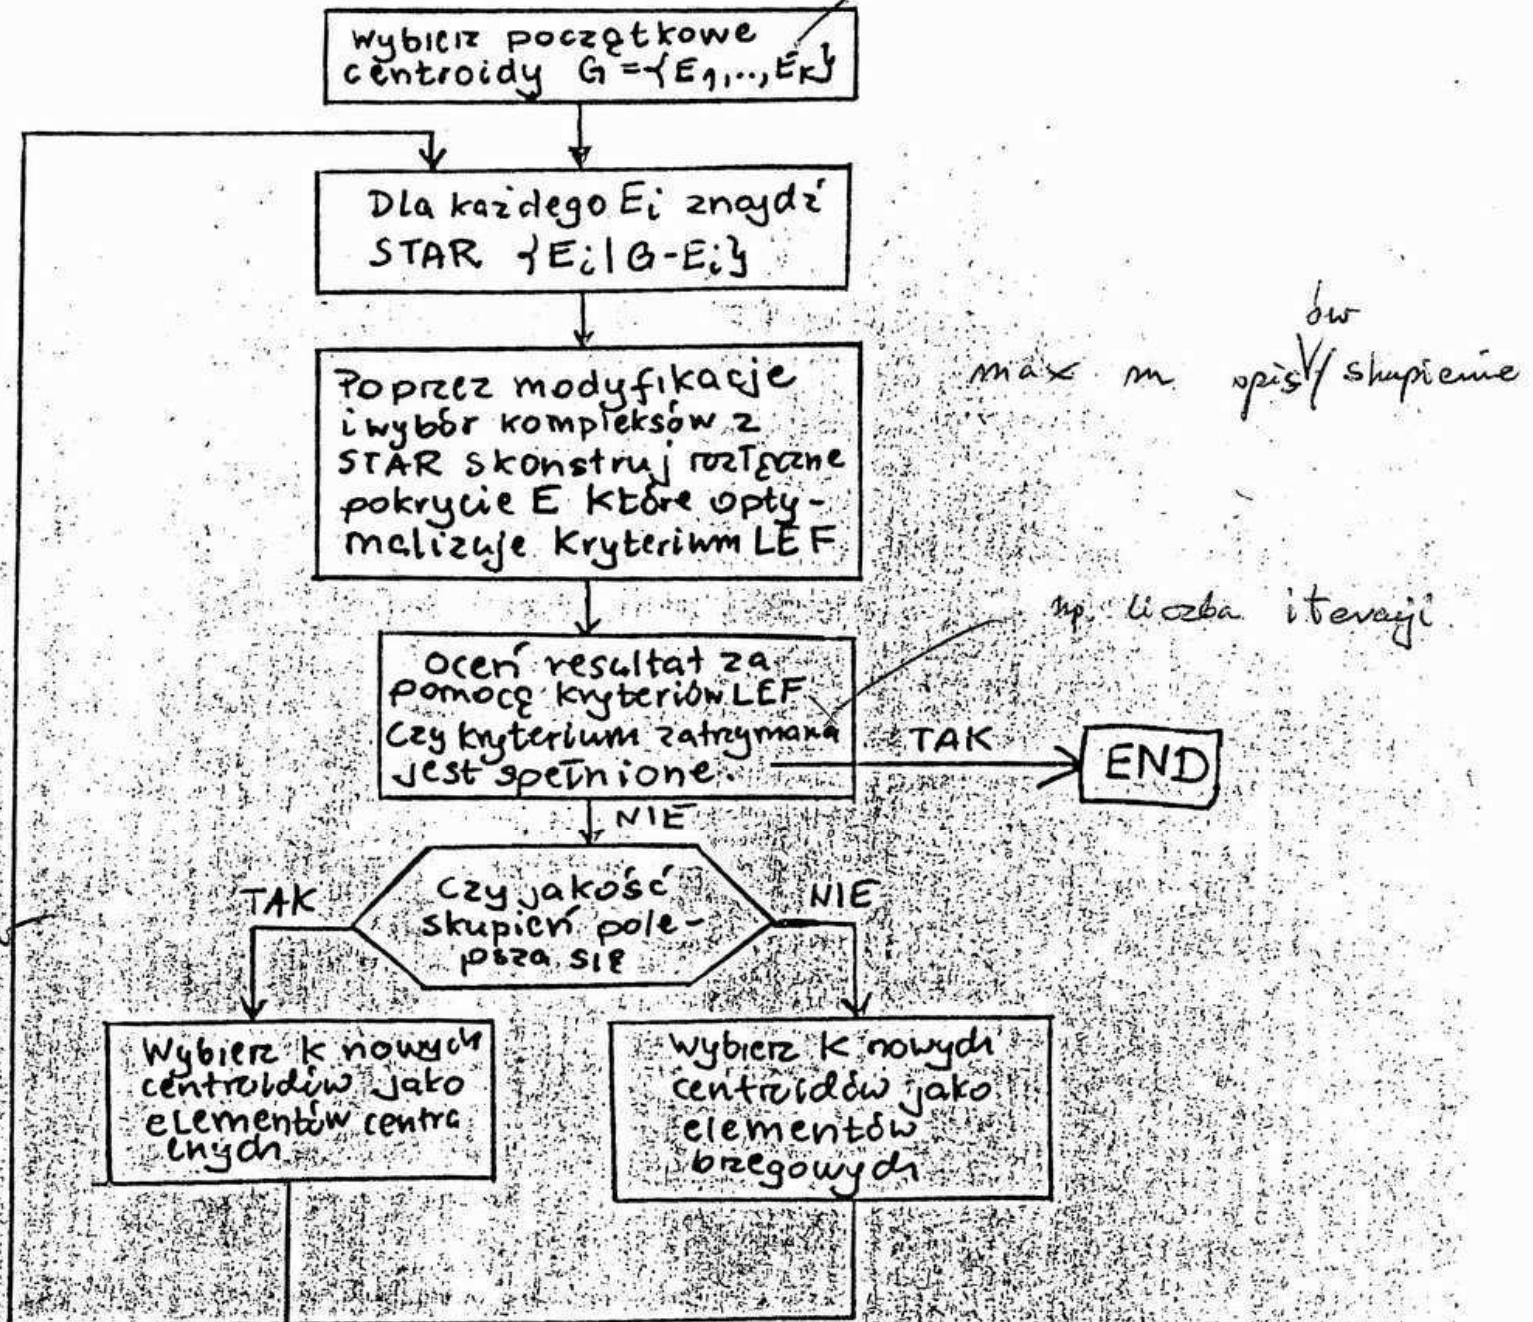 Wybierz początkowe
centroidy G = {E1,..,EK}
Dla każdego Ei znajdź
STAR {Ei | G-Ei}
Poprzez modyfikacje
i wybór kompleksów z
STAR skonstruj rozłączne
pokrycie E które opty-
malizuje kryterium LEF
ów
max m opis / skupienie
np. liczba iteracji
oceń resultat za
pomocą kryteriów LEF
Czy kryterium zatrzymana
jest spełnione.
TAK
END
NIE
Czy jakość
skupień pole-
psza się
TAK
NIE
Wybierz K nowych
centroidów jako
elementów centra
lnych
Wybierz K nowych
centroidów jako
elementów
brzegowych